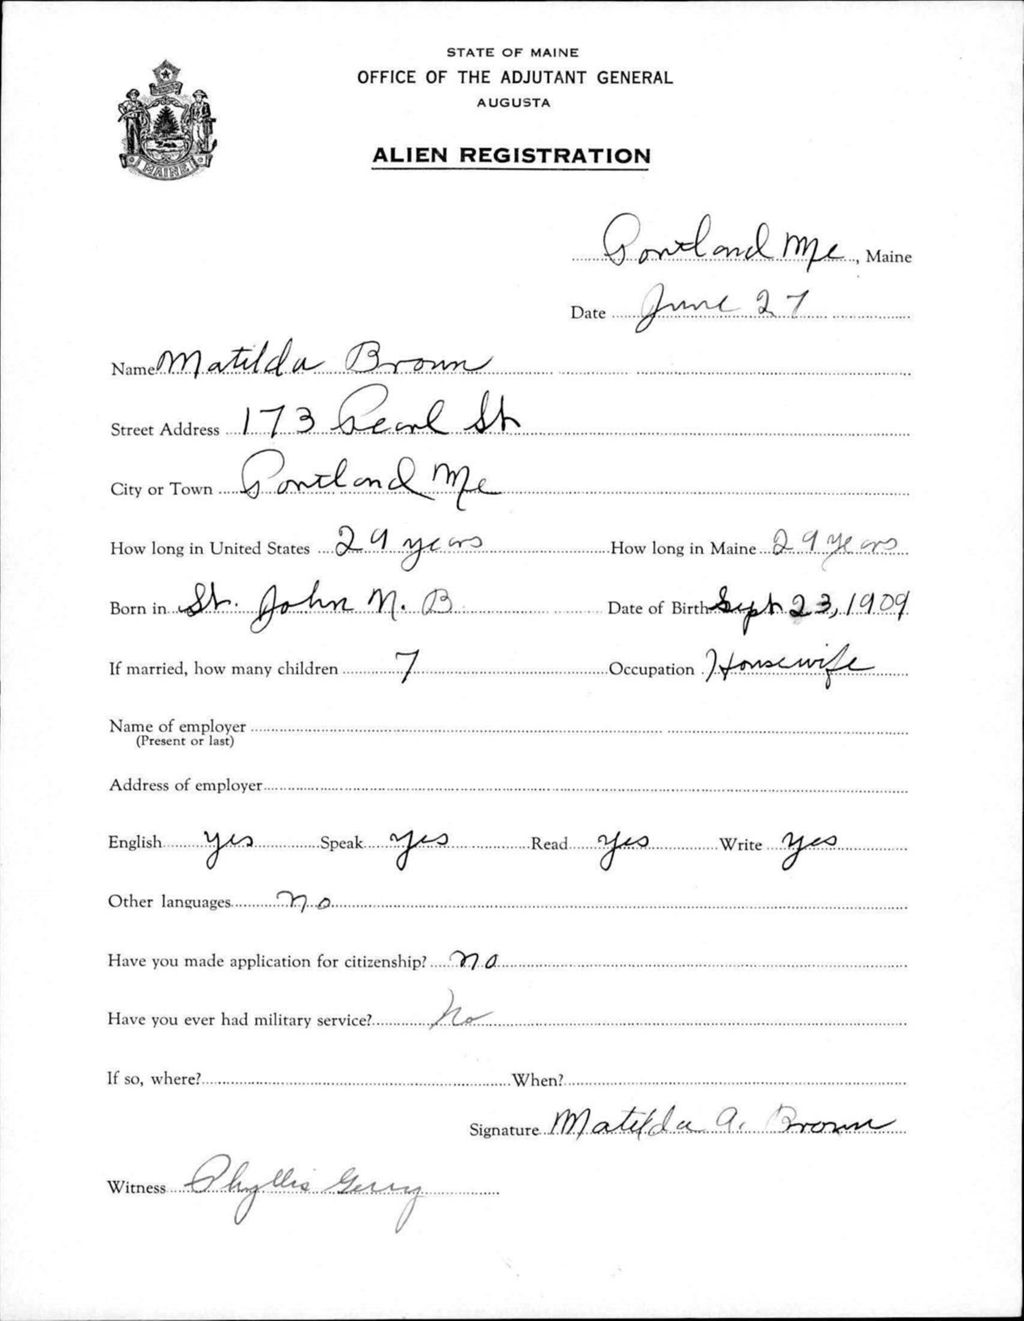 STATE OF MAINE
OFFICE OF THE ADJUTANT GENERAL
AUGUSTA
ALIEN REGISTRATION
MAINE
Portland Me, Maine
Date June 27
Name Matilda Brown
Street Address 173 Pearl St
City or Town Portland Me
How long in United States 29 years How long in Maine 29 years
Born in St. John N. B. Date of Birth Sept 23, 1909
If married, how many children 7 Occupation Housewife
Name of employer
(Present or last)
Address of employer
English yes Speak yes Read yes Write yes
Other languages no
Have you made application for citizenship? no
Have you ever had military service? no
If so, where? When?
Signature Matilda A. Brown
Witness Phyllis Gerry